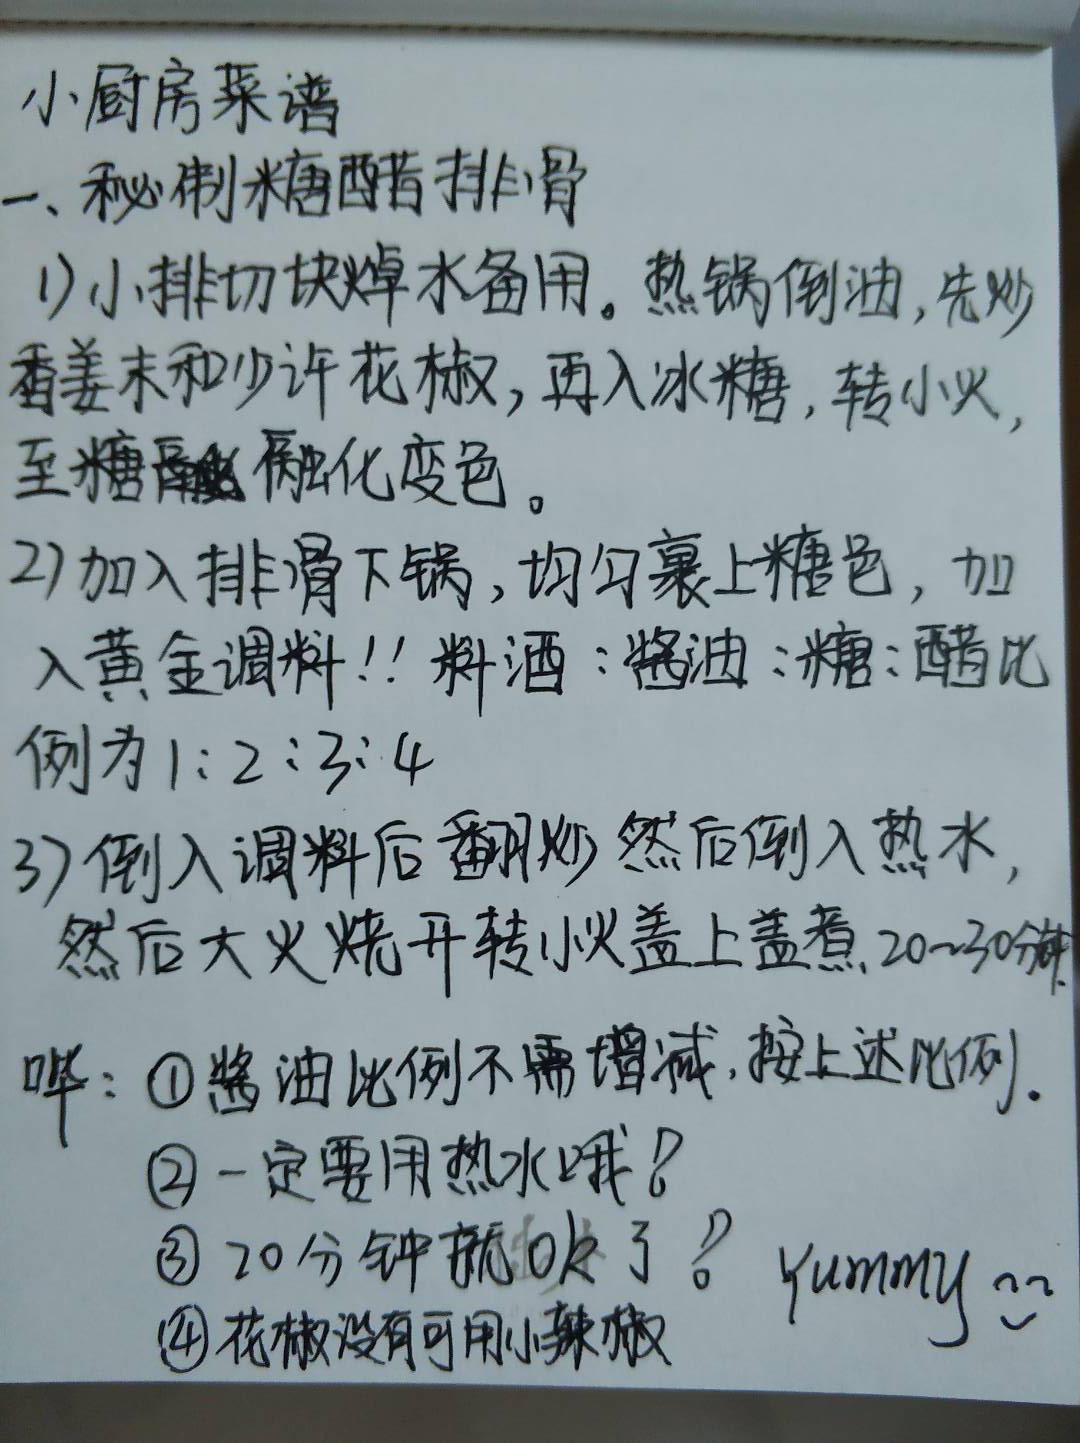 小厨房菜谱
一、秘制糖醋排骨
1)小排切块焯水备用。热锅倒油,先炒
香姜末和少许花椒,再入冰糖,转小火,
至糖融化变色。
2)加入排骨下锅,均匀裹上糖色,加
入黄金调料!! 料酒:酱油:糖:醋比
例为1:2:3:4
3)倒入调料后翻炒然后倒入热水,
然后大火烧开转小火盖上盖煮20~30分钟
哔:①酱油比例不需增减,按上述比例.
②一定要用热水哦!
③20分钟就ok了!
④花椒没有可用小辣椒
Yummy